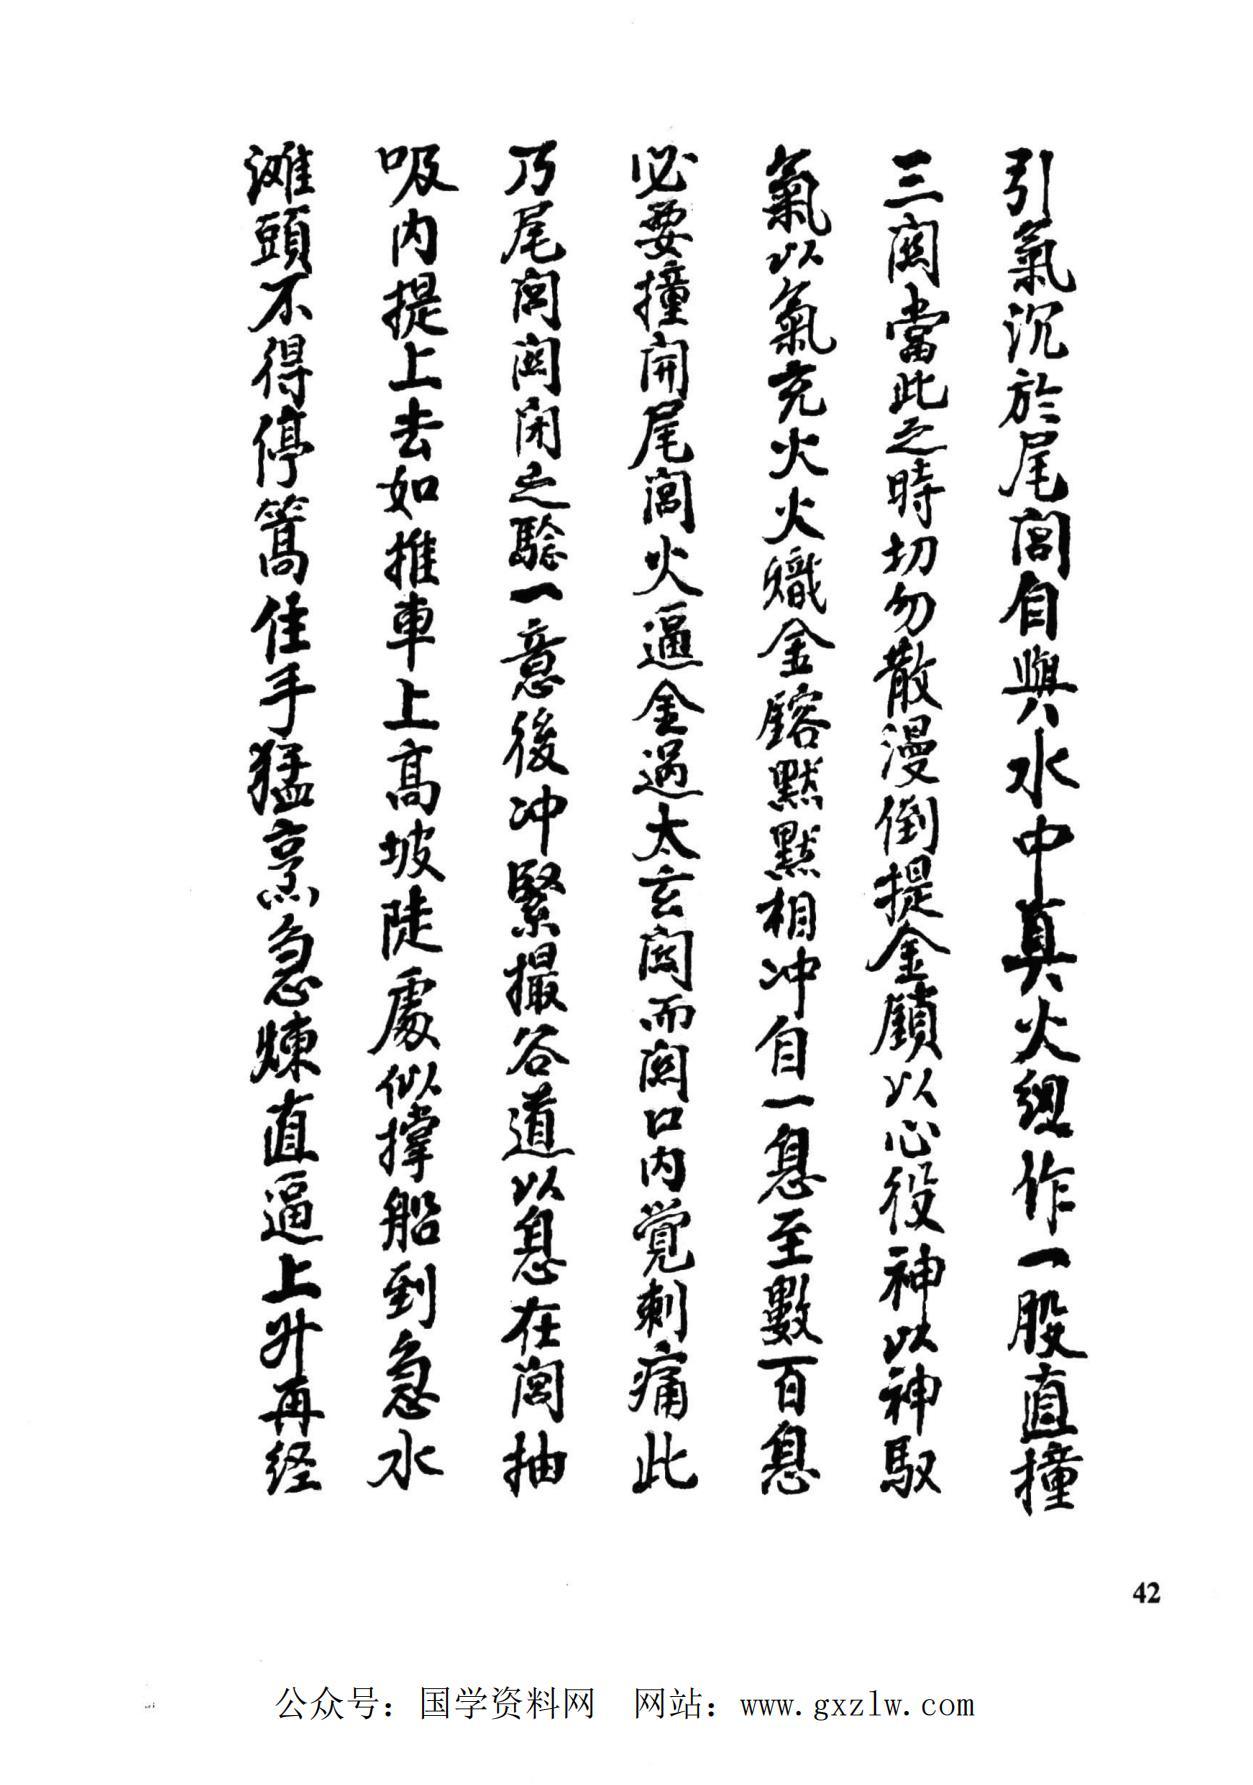 引氣沉於尾閭自與水中真火總作一股直撞
三関當此之時切勿散漫倒提金鎖以心役神以神馭
氣以氣充火火熾金鎔默默相冲自一息至數百息
必要撞開尾閭火逼金過太玄関而関口内覺刺痛此
乃尾閭関闭之驗一意後冲緊撮谷道以息在閭抽
吸内提上去如推車上高坡陡處似撑船到急水
滩頭不得停篙住手猛烹急煉直逼上升再经
42
公众号：国学资料网　网站：www.gxzlw.com